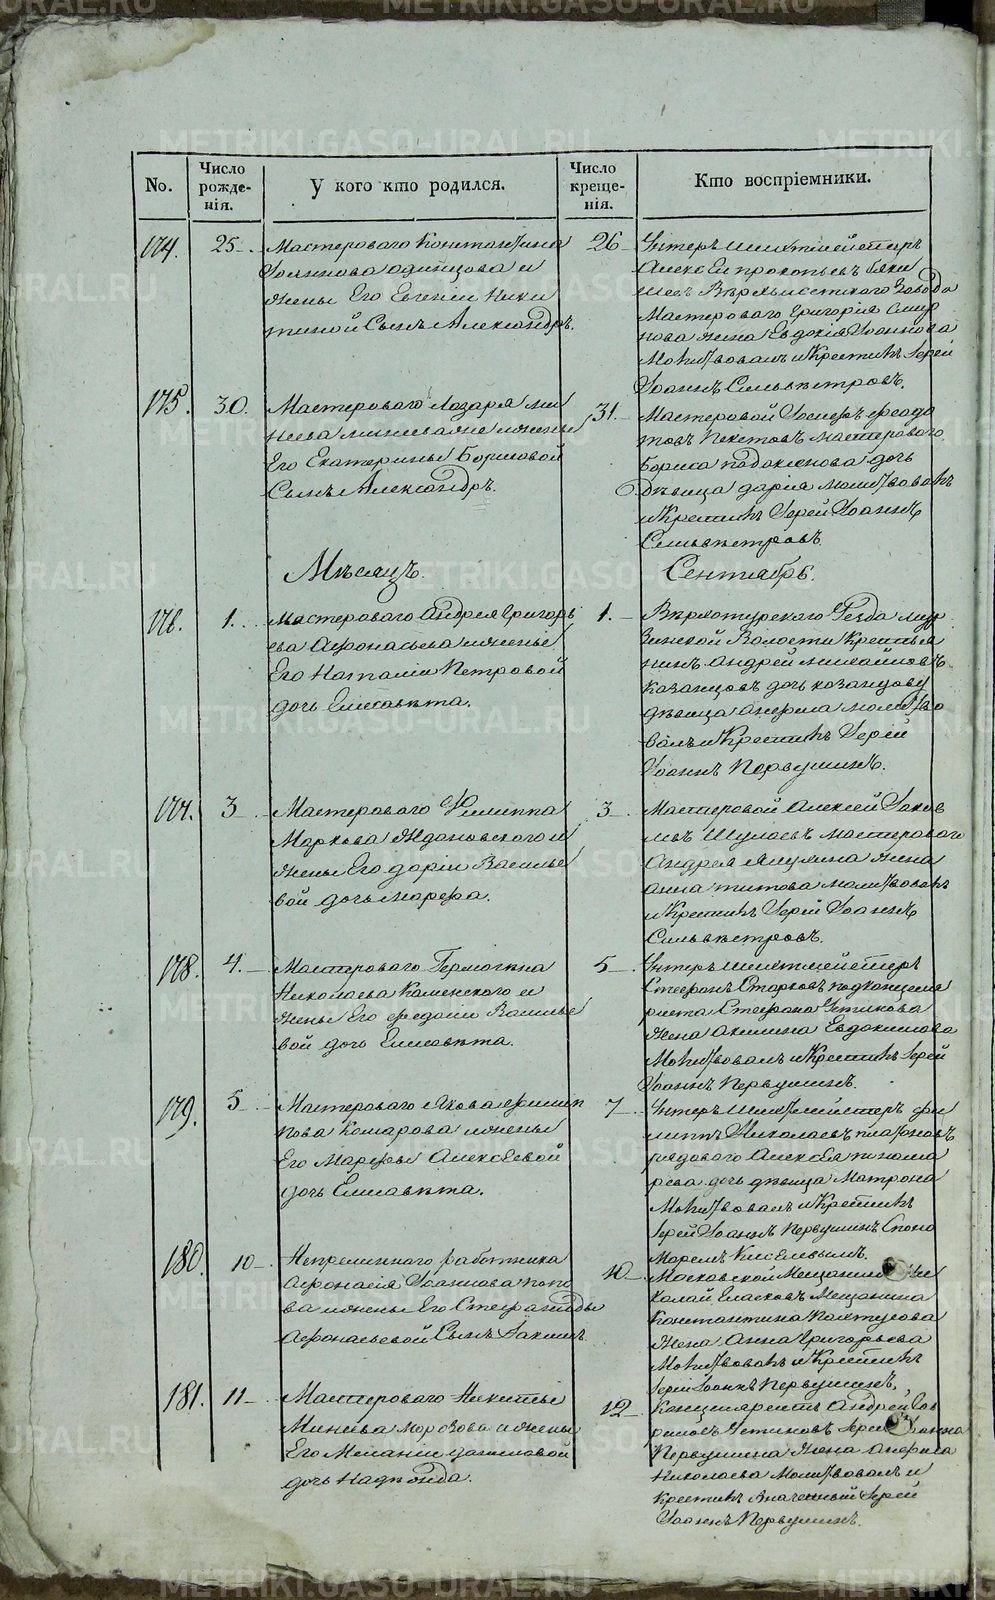 METRIKI.GASO-URAL.RU
No.
Число рожде-нія.
У кого кто родился.
Число креще-нія.
Кто воспріемники.
174.
25
Мастероваго Константина
Іоаннова Одинцова и
жены Его Евгеніи Ники
тиной Сынъ Александръ.
26
Унтеръ шихтмейстеръ
Алексѣй Прокопьевъ
шевъ Верхъисетскаго Завода
Мастероваго Григорія Смир
нова жена Евдокія Іоаннова
Молитвовалъ и Крестилъ Іерей
Іоаннъ Сильвестровъ.
175.
30.
Мастероваго Лазаря Ми
неева жены
Его Екатерины Борисовой
Сынъ Александръ.
31.
Мастеровой Іосифъ Федо
товъ Пекетовъ мастероваго
Бориса дочь
Дѣвица Дарія Молитвовалъ
и Крестилъ Іерей Іоаннъ
Сильвестровъ.
Мѣсяцъ.
Сентябрь.
176.
1.
Мастероваго Андрея Григорь
ева Афонасьева и жены
Его Наталіи Петровой
дочь Елисавета.
1.
Верхотурскаго Уезда Мур
зинской Волости Крестья
нинъ Андрей Михайловъ
Казанцовъ дочь Казанцову
дѣвица Анфиса молитво
валъ и Крестилъ Іерей
Іоаннъ Первушинъ.
177.
3
Мастероваго Филиппа
Маркова Ждановскаго и
жены Его Даріи Василье
вой дочь Марфа.
3
Мастеровой Алексей Іаков
левъ мастероваго
Андрея жена
Анна Титова молитвовалъ
и Крестилъ Іерей Іоаннъ
Сильвестровъ.
178.
4.
Мастероваго Гермогена
Николаева Каменскаго и
жены Его Федосіи Василье
вой дочь Елисавета.
5
Унтеръ шихтмейстеръ
Стефанъ Старковъ подканцеля
риста Стефана Устинова
жена Акилина Евдокимова
Молитвовалъ и Крестилъ Іерей
Іоаннъ Первушинъ.
179.
5
Мастероваго Якова Филип
пова Комарова и жены
Его Марфы Алексеевой
дочь Елисавета.
7
Унтеръ шихтмейстеръ Фи
липпъ Николаевъ Платоновъ
рядоваго Алексея Понома
рева дочь дѣвица Матрона
Молитвовалъ и Крестилъ
Іерей Іоаннъ Первушинъ Споно
маремъ Киселевымъ.
180.
10
Непременнаго работника
Афонасія Іоаннова Попо
ва и жены Его Стефаниды
Афонасьевой Сынъ Іакимъ
10
Московской Мещанинъ Ни
колай Еласковъ Мещанина
Константина Полтусова
жена Анна Григорьева
Молитвовалъ и Крестилъ
Іерей Іоаннъ Первушинъ,
181.
11
Мастероваго Никиты
Минеева Морозова и жены
Его Меланіи Даниловой
дочь Надежда.
12
Канцеляристъ Андрей Гав
риловъ Устиновъ Іерея Іоанна
Первушина жена Анфиса
Николаева Молитвовалъ и
Крестилъ Значенный Іерей
Іоаннъ Первушинъ.